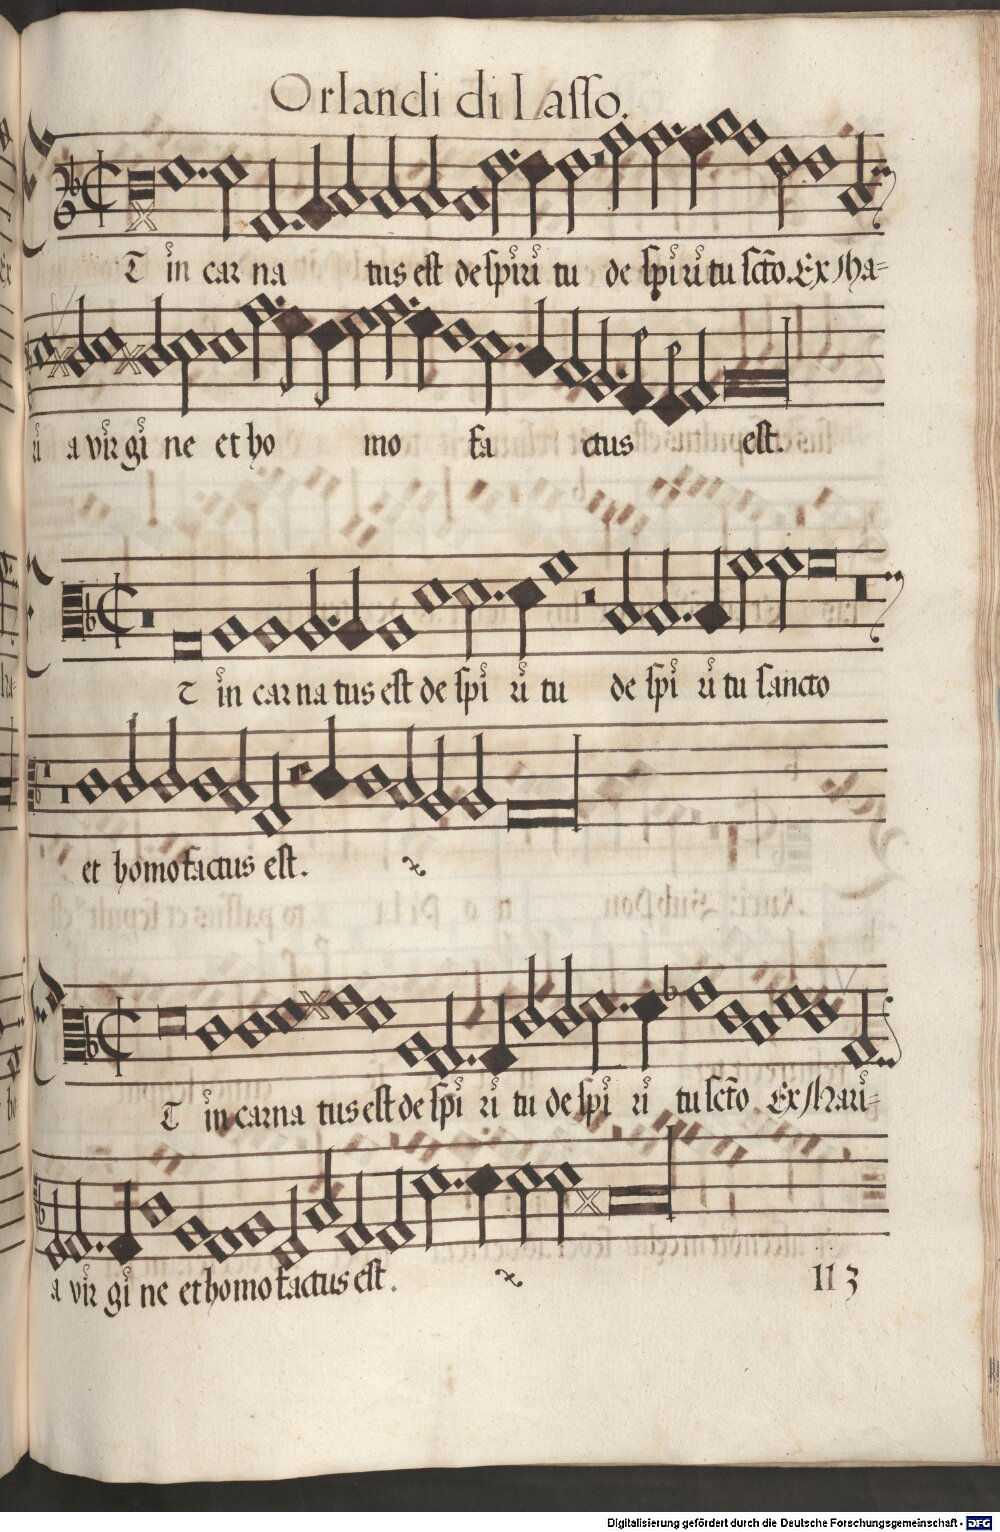 Orlandi di Lasso.
T in car na tus est de spiri tu de spi ri tu scto. Ex Ma=
ri a vir gi ne et ho mo fa ctus est.
T in car na tus est de spi ri tu de spi ri tu sancto
et homo factus est.
T in carna tus est de spi ri tu de spi ri tu scto Ex Mari=
a vir gi ne et homo factus est.
113
Digitalisierung gefördert durch die Deutsche Forschungsgemeinschaft - DFG